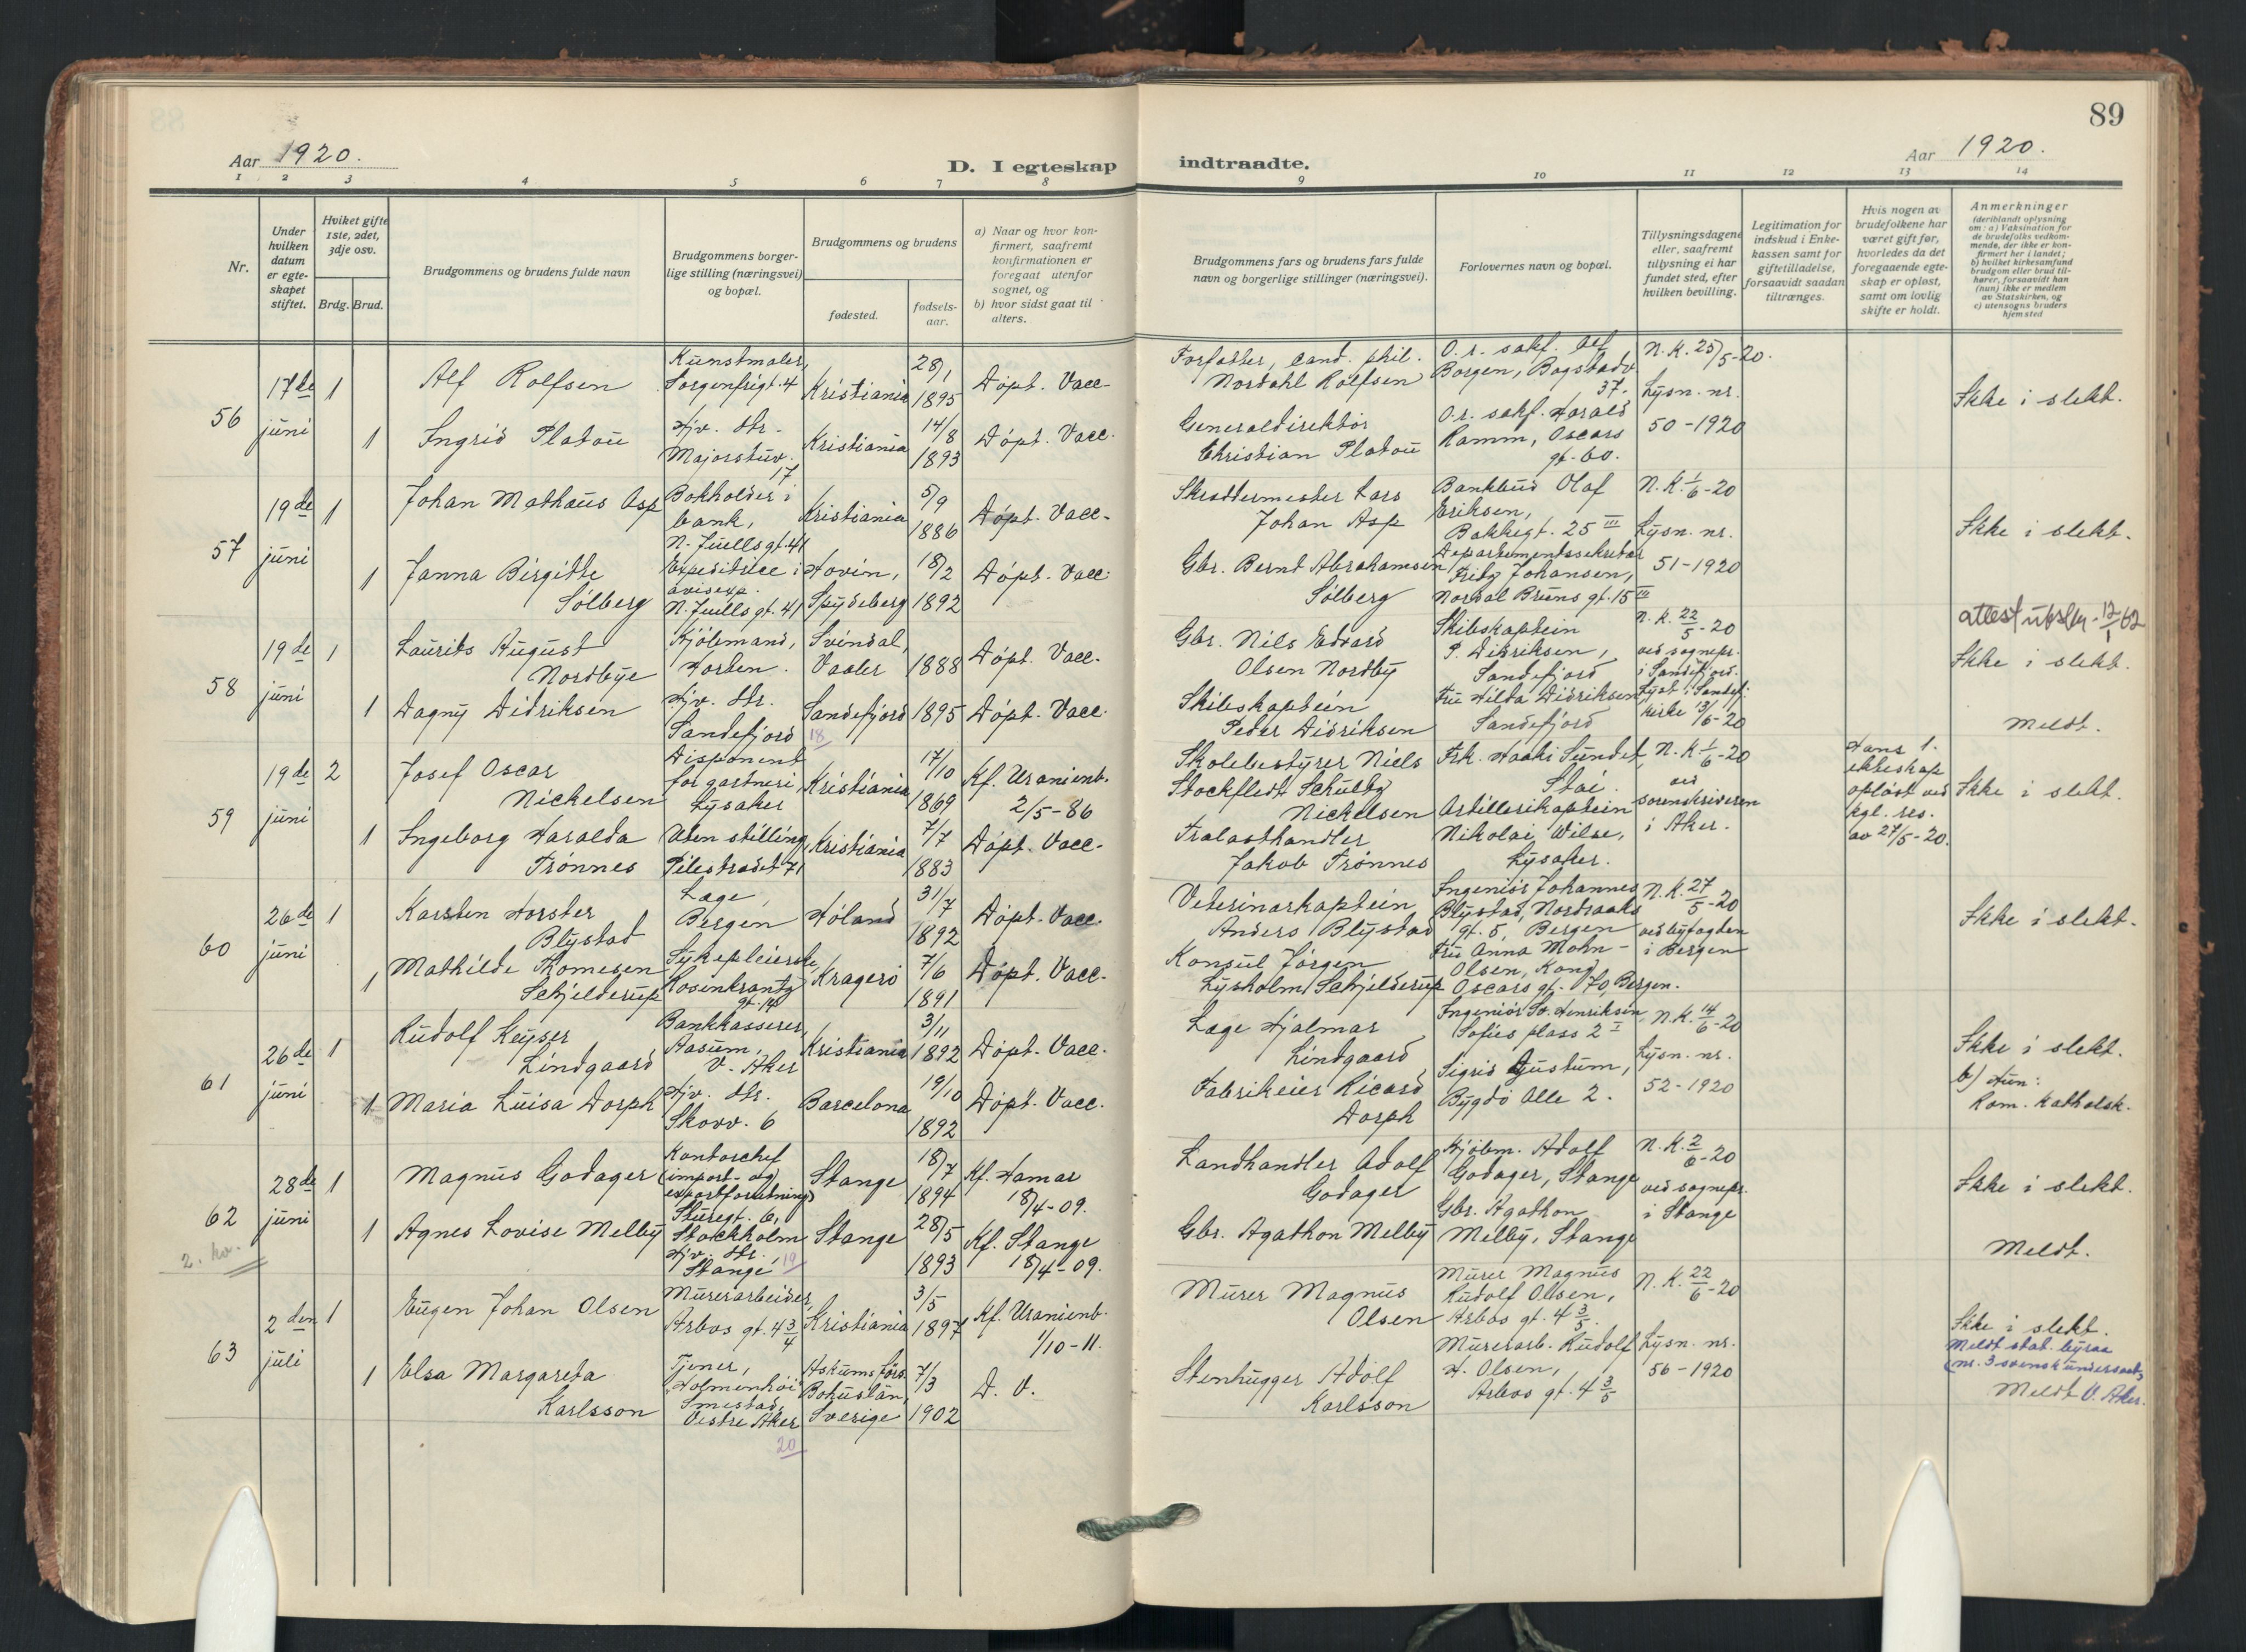 89
Aar 1920.
D. I egteskap indtraadte.
Aar 1920.
1 2 3 4 5 6 7 8 9 10 11 12 13 14
Nr.
Under hvilken datum er egteskapet stiftet.
Hvilket gifte 1ste, 2det, 3dje osv.
Brdg. Brud.
Brudgommens og brudens fulde navn
Brudgommens borgerlige stilling (næringsvei) og bopæl.
Brudgommens og brudens
fødested.
fødselsaar.
a) Naar og hvor konfirmert, saafremt konfirmationen er foregaat utenfor sognet, og
b) hvor sidst gaat til alters.
Brudgommens fars og brudens fars fulde navn og borgerlige stillinger (næringsvei).
Forlovernes navn og bopæl.
Tillysningsdagene eller, saafremt tillysning ei har fundet sted, efter hvilken bevilling.
Legitimation for indskud i Enkekassen samt for giftetilladelse, forsaavidt saadan tiltrænges.
Hvis nogen av brudefolkene har været gift før, hvorledes da det foregaaende egteskap er opløst, samt om lovlig skifte er holdt.
Anmerkninger
(deriblandt oplysning om: a) Vaksination for de brudefolks vedkommende, der ikke er konfirmert her i landet;
b) hvilket kirkesamfund brudgom eller brud tilhører, forsaavidt han (hun) ikke er medlem av Statskirken, og
c) utensogns bruders hjemsted
56
17de juni
1
Alf Rolfsen
Kunstmaler, Sorgenfrigt. 4
Kristiania
28/1 1895
Døpt. Vacc.
Forfatter, cand. phil. Nordahl Rolfsen
O.r. sakf. Alf Borgen, Bogstadv. 37.
N.K. 25/5-20.
Ikke i slekt.
1
Ingrid Platou
Hjv. dtr. Majorstuv. 17
Kristiania
14/8 1893
Døpt. Vacc.
Generaldirektør Christian Platou
O.r. sakf. Harald Ramm, Oscars gt. 60.
Lysn. nr. 50-1920
57
19de juni
1
Johan Mathæus Asp
Bokholder i bank, N. Juells gt. 41
Kristiania
5/9 1886
Døpt. Vacc.
Skræddermester Lars Johan Asp
Bankbud Olaf Eriksen, Bakkegt. 25 III
N.K. 1/6-20
Ikke i slekt.
1
Janna Birgitte Solberg
Expeditrice i avisexp. N. Juells gt. 41
Hovin, Spydeberg
18/2 1892
Døpt. Vacc.
Gbr. Bernt Abrahamsen Solberg
Departementssekretær Fritz Johansen, Nordal Bruns gt. 15 III
Lysn. nr. 51-1920
58
19de juni
1
Laurits August Nordbye
Kjøbmand, Horten.
Svindal, Vaaler
1888
Døpt. Vacc.
Gbr. Nils Edvard Olsen Nordby
Skibskaptein P. Didriksen, Sandefjord
N.K. 22/5-20 ved sognepr. i Sandefjord.
attest utskr. 12/1 62
Ikke i slekt.
1
Dagny Didriksen
Hjv. dtr. Sandefjord
18
Sandefjord
1895
Døpt. Vacc.
Skibskaptein Peder Didriksen
Fru Hilda Didriksen Sandefjord
Lyst i Sandefj. kirke 13/6-20
Meldt.
59
19de juni
2
Josef Oscar Nickelsen
Disponent for gartneri, Lysaker
Kristiania
17/10 1869
Kf. Uranienb. 2/5-86
Skolebestyrer Niels Stockfleth Schultz Nickelsen
Frk. Haaki Sundet, Stai.
N.K. 1/6-20 ved sorenskriveren i Aker.
Hans 1. ekteskap opløst ved kgl. res. av 27/5-20.
Ikke i slekt.
1
Ingeborg Haralda Trønnes
Uten stilling, Pilestrædet 71
Kristiania
7/7 1883
Døpt. Vacc.
Trælasthandler Jakob Trønnes
Artillerikaptein Nikolai Wilse, Lysaker.
60
26de juni
1
Karsten Horster Blystad
Læge, Bergen
Høland
31/7 1892
Døpt. Vacc.
Veterinærkaptein Anders Blystad
Ingeniør Johannes Blystad, Nordraaks gt. 5, Bergen
N.K. 27/5-20 ved byfogden i Bergen
Ikke i slekt.
1
Mathilde Thomesen Schjelderup
Sykepleierske, Rosenkrantz gt. 14
Kragerø
7/6 1891
Døpt. Vacc.
Konsul Jørgen Lysholm Schjelderup
Fru Anna Mohn-Olsen, Kong Oscars gt. 70, Bergen.
61
26de juni
1
Rudolf Keyser Lindgaard
Bankkasserer, Aasum, V. Aker
Kristiania
3/11 1892
Døpt. Vacc.
Læge Hjalmar Lindgaard
Ingeniør Sv. Henriksen, Sofies plass 2 I
N.K. 14/6-20
Ikke i slekt.
1
Maria Luisa Dorph
Hjv. dtr. Skovv. 6
Barcelona
19/10 1892
Døpt. Vacc.
Fabrikeier Ricard Dorph
Sigrid Gustum, Bygdø Alle 2.
Lysn. nr. 52-1920
b) Hun: Rom. katholsk.
62
2. kv.
28de juni
1
Magnus Godager
Kontorchef (import- og exportforretning) Sturegt. 6, Stockholm
Stange
18/7 1894
Kf. Hamar 18/4-09.
Landhandler Adolf Godager
Kjøbm. Adolf Godager, Stange
N.K. 2/6-20 ved sognepr. i Stange
Ikke i slekt.
1
Agnes Lovise Melby
Hjv. dtr. Stange
19
Stange
28/5 1893
Kf. Stange 18/4-09.
Gbr. Agathon Melby
Gbr. Agathon Melby, Stange
Meldt.
63
2den juli
1
Eugen Johan Olsen
Murerarbeider, Arbos gt. 4 3/4
Kristiania
3/5 1897
Kf. Uranienb. 1/10-11.
Murer Magnus Olsen
Murer Magnus Rudolf Olsen, Arbos gt. 4 3/5.
N.K. 22/6-20
Ikke i slekt.
1
Elsa Margareta Karlsson
Tjener, "Holmenhøi" Smestad, Vestre Aker
20
Askums förs. Bohuslän, Sverige
7/3 1902
D. V.
Stenhugger Adolf Karlsson
Murerarb. Rudolf H. Olsen, Arbos gt. 4 3/5
Lysn. nr. 56-1920
Meldt stat. byraa (nr. 3 svensk undersaat)
Meldt V. Aker.